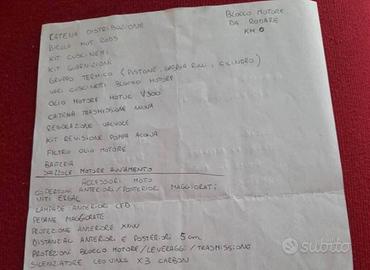 CATENA DISTRIBUZIONE
BIELLA HOT RODS
KIT CUSCINETTI
KIT GUARNIZIONI
GRUPPO TERMICO (PISTONE, GABBIA RULLI, CILINDRO)
VARI CUSCINETTI BLOCCO MOTORE
OLIO MOTORE MOTUL V300
CATENA TRASMISSIONE NUOVA
REGOLAZIONE VALVOLE
KIT REVISIONE POMPA ACQUA
FILTRO OLIO MOTORE
BATTERIA
MOTORINO AVVIAMENTO
BLOCCO MOTORE
DA RODARE
KM 0
ACCESSORI MOTO
DISPERSIONE ANTERIORI/POSTERIORI MAGGIORATI
VITI ERGAL
LAMPADE ANTERIORI LED
PEDANE MAGGIORATE
PROTEZIONE ANTERIORE
DISTANZIALI ANTERIORI E POSTERIORI 5 cm
PROTEZIONI BLOCCO MOTORE/LEVERAGGI/TRASMISSIONE
SILENZIATORE LEOVINCE X3 CARBON
subito